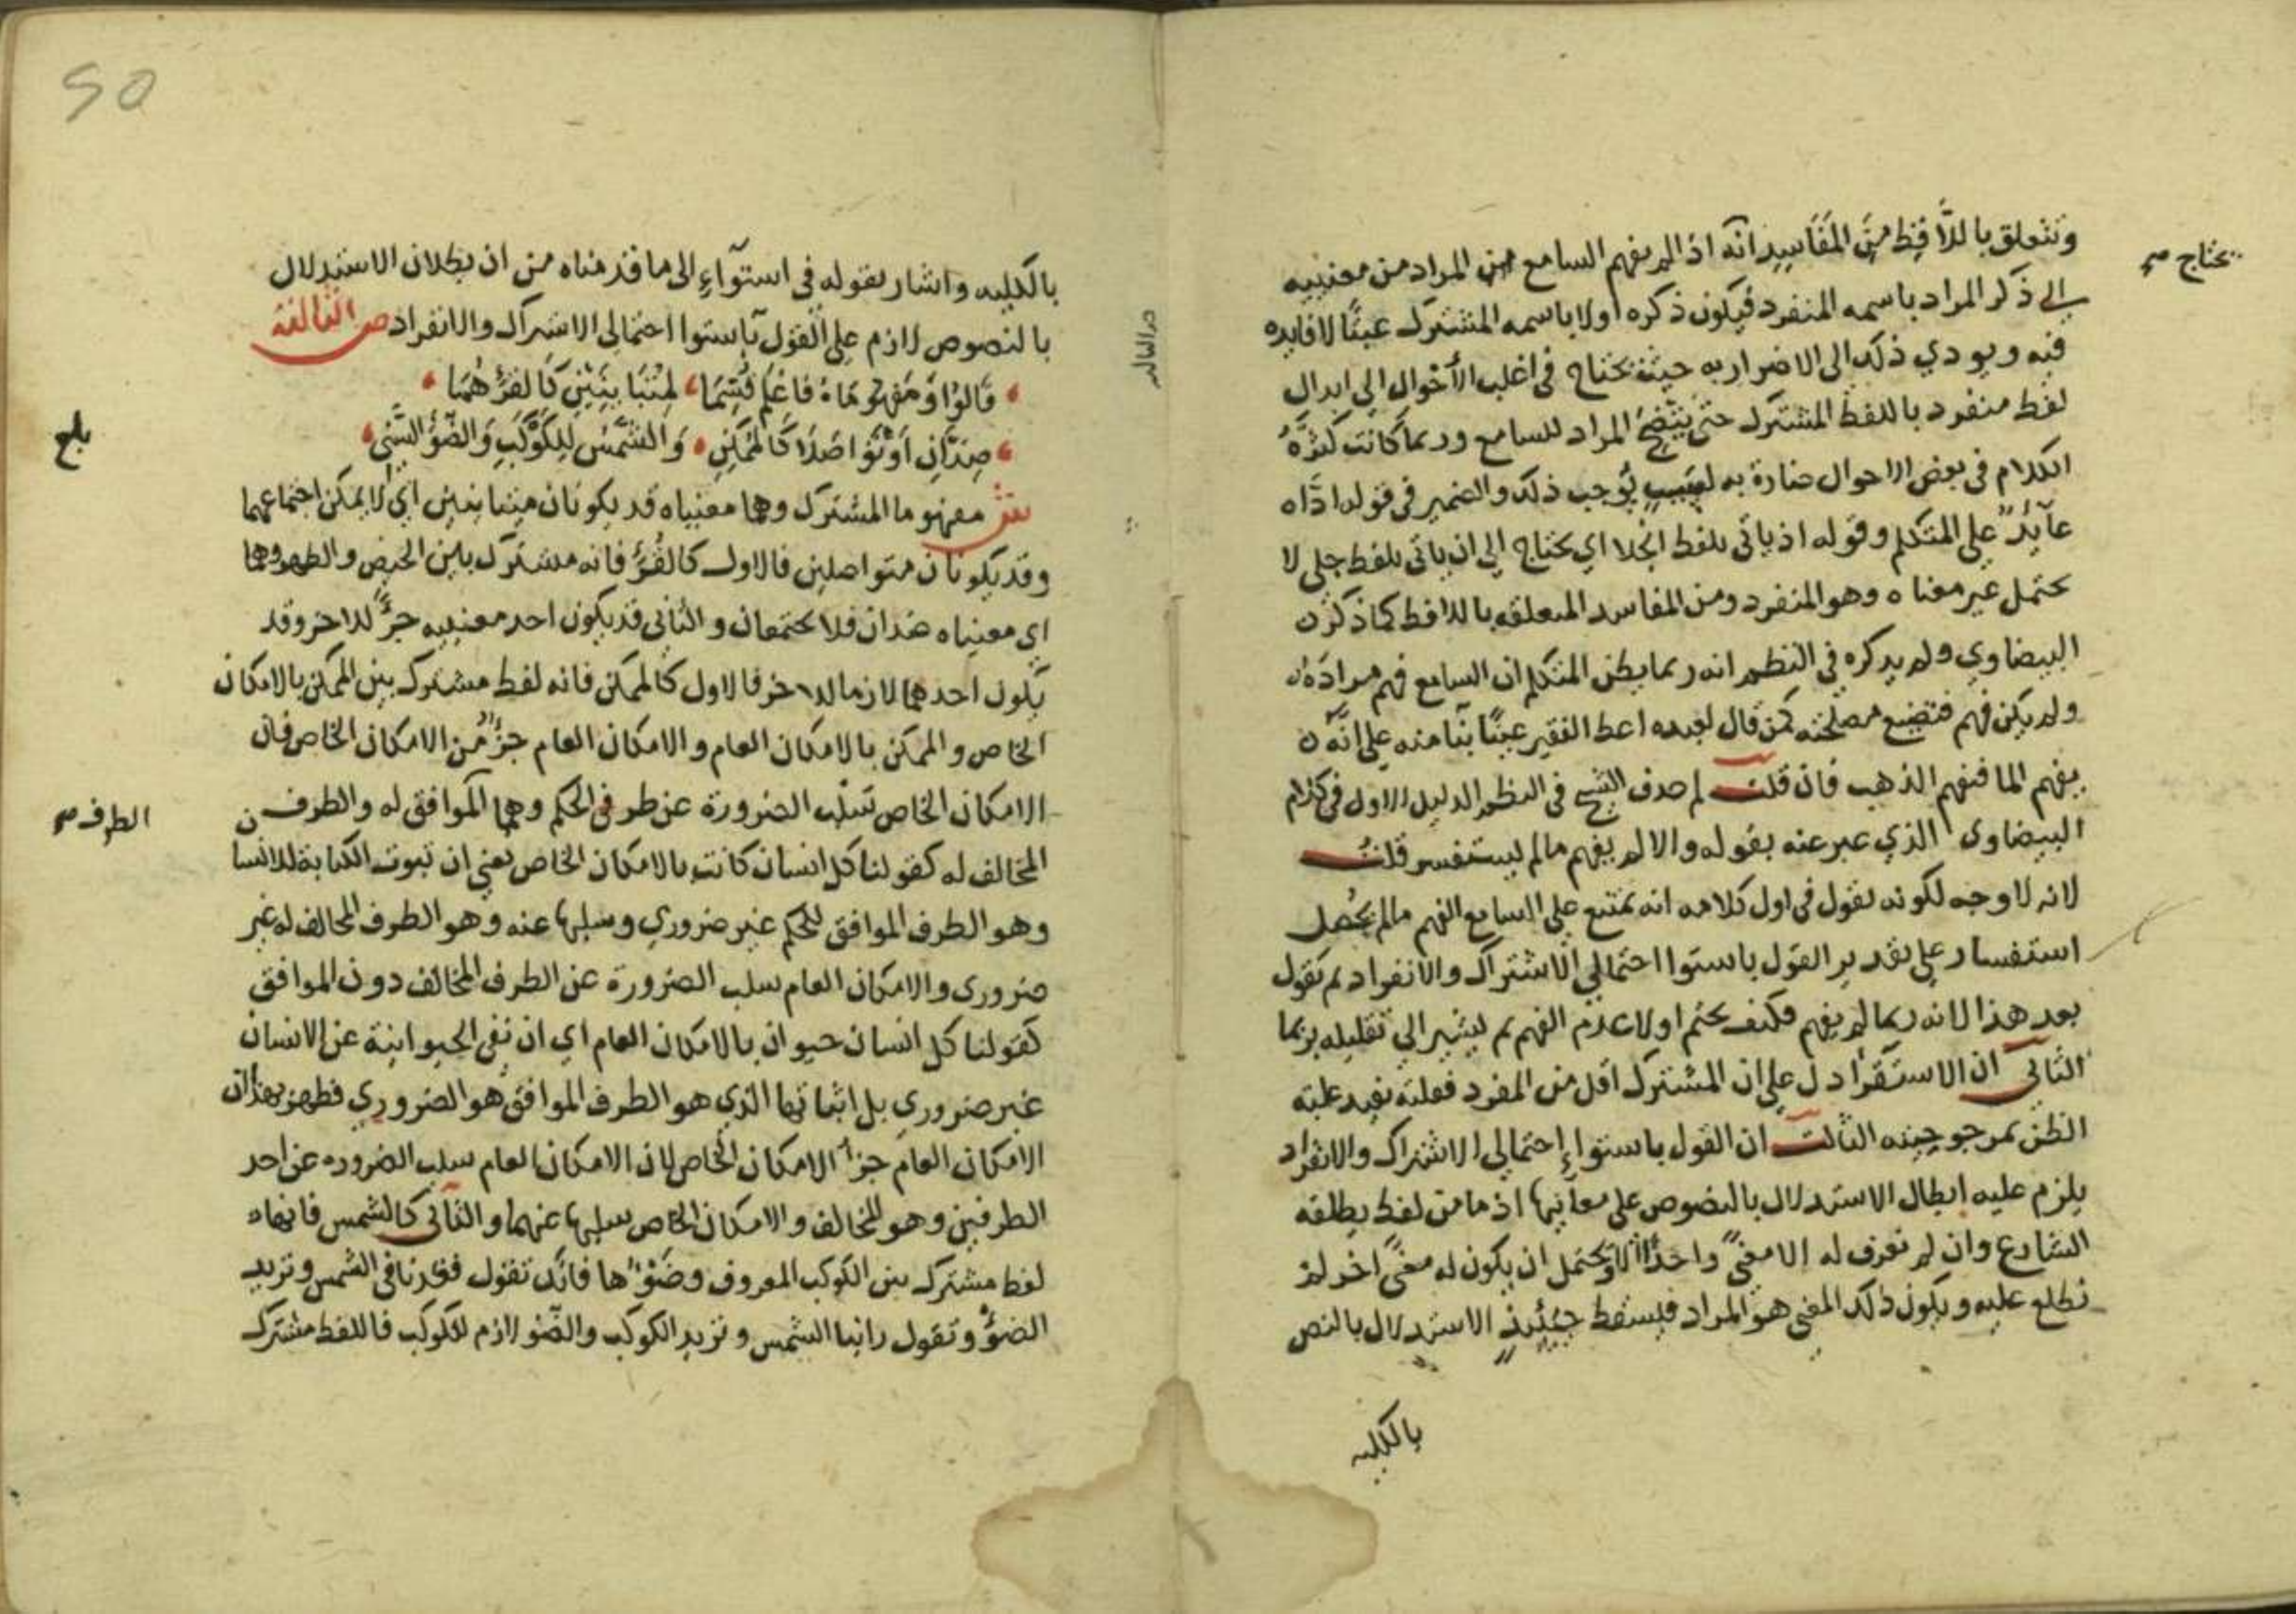 وتتعلق باللافظ من المفاسد انه اذا لم يفهم السامع المراد من معنييه
يحتاج صح
الى ذكر المراد باسمه المنفرد فيكون ذكره اولا باسمه المشترك عبثا لا فايده
فيه ويودي ذلك الى الاضرار به حيث يحتاج في اغلب الأحوال الى ابدال
لفظ منفرد باللفظ المشترك حتى يتضح المراد للسامع وربما كانت كثرة
الكلام في بعض الاحوال ضارة به لسبب يوجب ذلك والضمير في قوله اداه
عآيد على المتكلم وقوله اذ ياتي بلفظ انجلا اي يحتاج الى ان ياتي بلفظ جلي لا
يحتمل غير معناه وهو المنفرد ومن المفاسد المتعلقه باللافظ كما ذكره
البيضاوي ولم يذكره في النظم انه ربما يظن المتكلم ان السامع فهم مراده
ولم يكن فهم فتضيع مصلحته كمن قال لعبده اعط الفقير عينا بنا منه على انه
يفهم الما ففهم الذهب فان قلت لم حذف الشيخ في النظم الدليل الاول في كلام
البيضاوى الذي عبر عنه بقوله والا لم يفهم مالم يستفسر قلت
لانه لا وجه لكونه يقول في اول كلامه انه يمتنع على السامع الفهم مالم يحصل
استفسار على تقدير القول باستوا احتمالي الاشتراك والانفراد ثم يقول
بعد هذا لانه ربما لم يفهم فكيف يحتم اولا عدم الفهم ثم يشير الى تقليله بربما
الثاني ان الاستقرا دل على ان المشترك اقل من المفرد فقلته تفيد غلبة
الظن بمرجوحيته الثالث ان القول باستواء إحتمالي الاشتراك والانفراد
يلزم عليه ابطال الاستدلال بالنصوص على معانيها اذ ما من لفظ يطلقه
الشارع وان لم نعرف له الا معنى واحدا الا ويحتمل ان يكون له معنى اخر لم
نطلع عليه ويكون ذلك المعنى هو المراد فيسقط حينئذ الاستدلال بالنص
بالكليه
50
بالكليه واشار بقوله في استوآء الى ما قدمناه من ان بطلان الاستدلال
بالنصوص لازم على القول باستوا احتمالي الاشتراك والانفراد ص الثالثة
قالوا ومفهوماه فاعلم قسما لمتباينين كالقرء هما
صدان او تواصلا كالممكن والشمس للكوكب والضوء السني
بلغ
ش مفهوما المشترك وهما معنياه قد يكونان متباينين اي لا يمكن اجتماعهما
وقد يكونان متواصلين فالاول كالقرء فانه مشترك بين الحيض والطهر وهما
اي معنياه ضدان فلا يجتمعان والثاني قد يكون احد معنييه جزءا للاخر وقد
يكون احدهما لازما للاخر فالاول كالممكن فانه لفظ مشترك بين الممكن بالامكان
الخاص والممكن بالامكان العام والامكان العام جزء من الامكان الخاص فان
الامكان الخاص سلب الضرورة عن طرفي الحكم وهما الموافق له والطرف
الطرف صح
المخالف له كقولنا كل انسان كاتب بالامكان الخاص يعني ان ثبوت الكتابة للانسان
وهو الطرف الموافق للحكم غير ضروري وسلبها عنه وهو الطرف المخالف له غير
ضرورى والامكان العام سلب الضرورة عن الطرف المخالف دون الموافق
كقولنا كل انسان حيوان بالامكان العام اي ان نفي الحيوانية عن الانسان
غير ضروري بل اثباتها الذي هو الطرف الموافق هو الضروري فظهر بهذا ان
الامكان العام جزء الامكان الخاص لان الامكان العام سلب الضروره عن احد
الطرفين وهو المخالف والامكان الخاص سلبها عنهما والثاني كالشمس فانها
لفظ مشترك بين الكوكب المعروف وضوئها فانك تقول قعدنا في الشمس وتريد
الضوء وتقول راينا الشمس وتريد الكوكب والضو لازم للكوكب فاللفظ مشترك